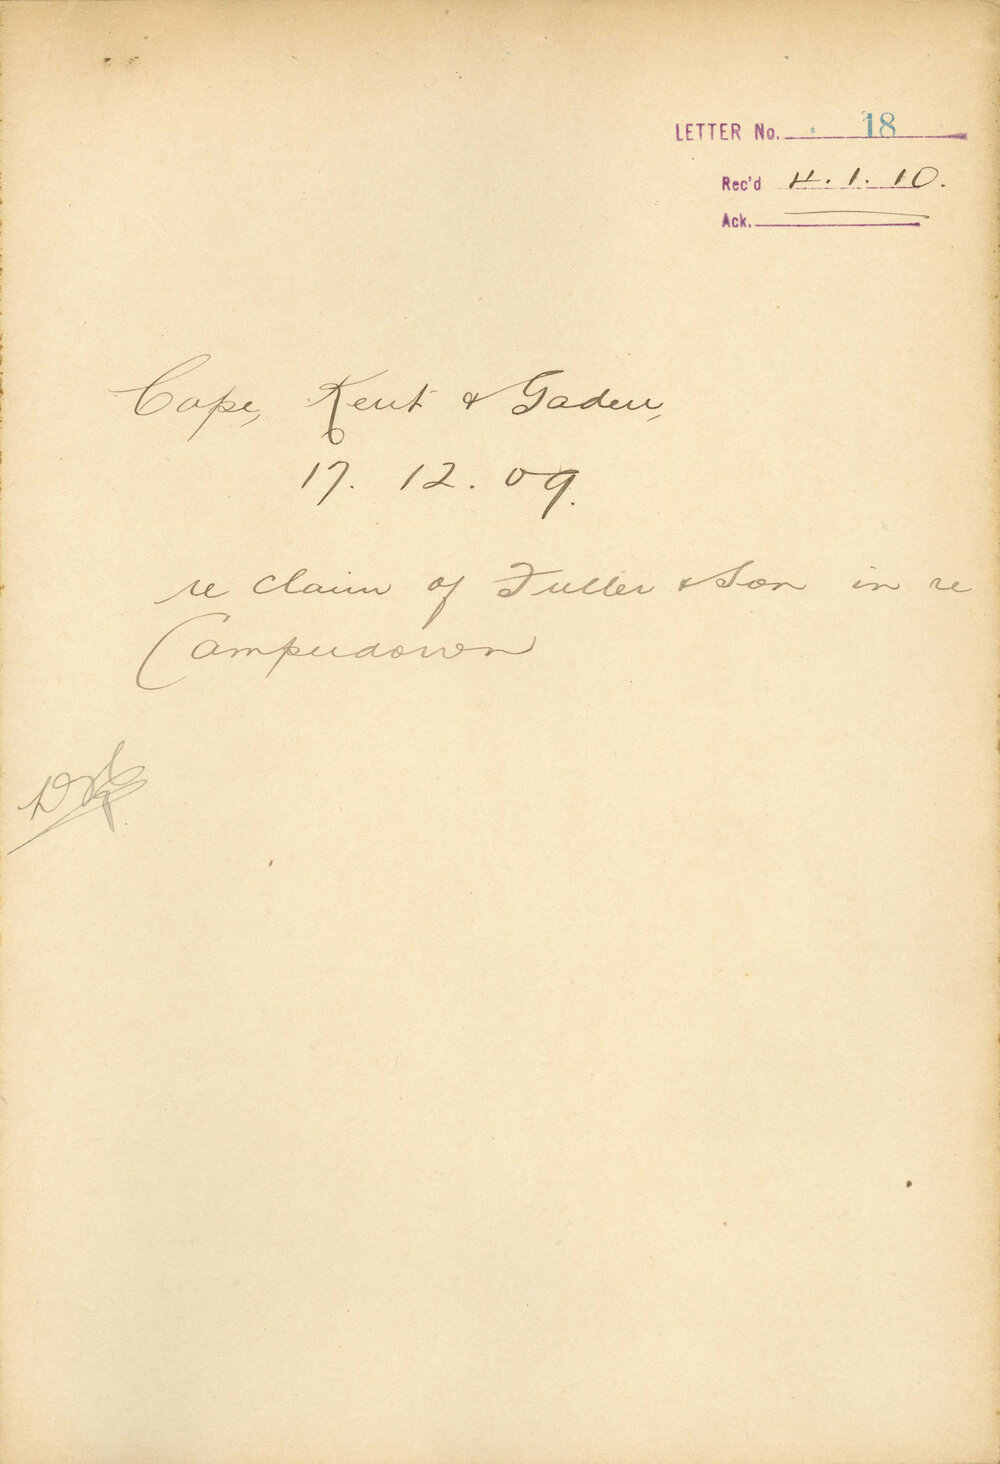 LETTER No. 18
Rec'd 4.1.10.
Ack.
Cape, Kent & Gaden,
17.12.09.
re claim of Fuller & Son in re
Camperdown